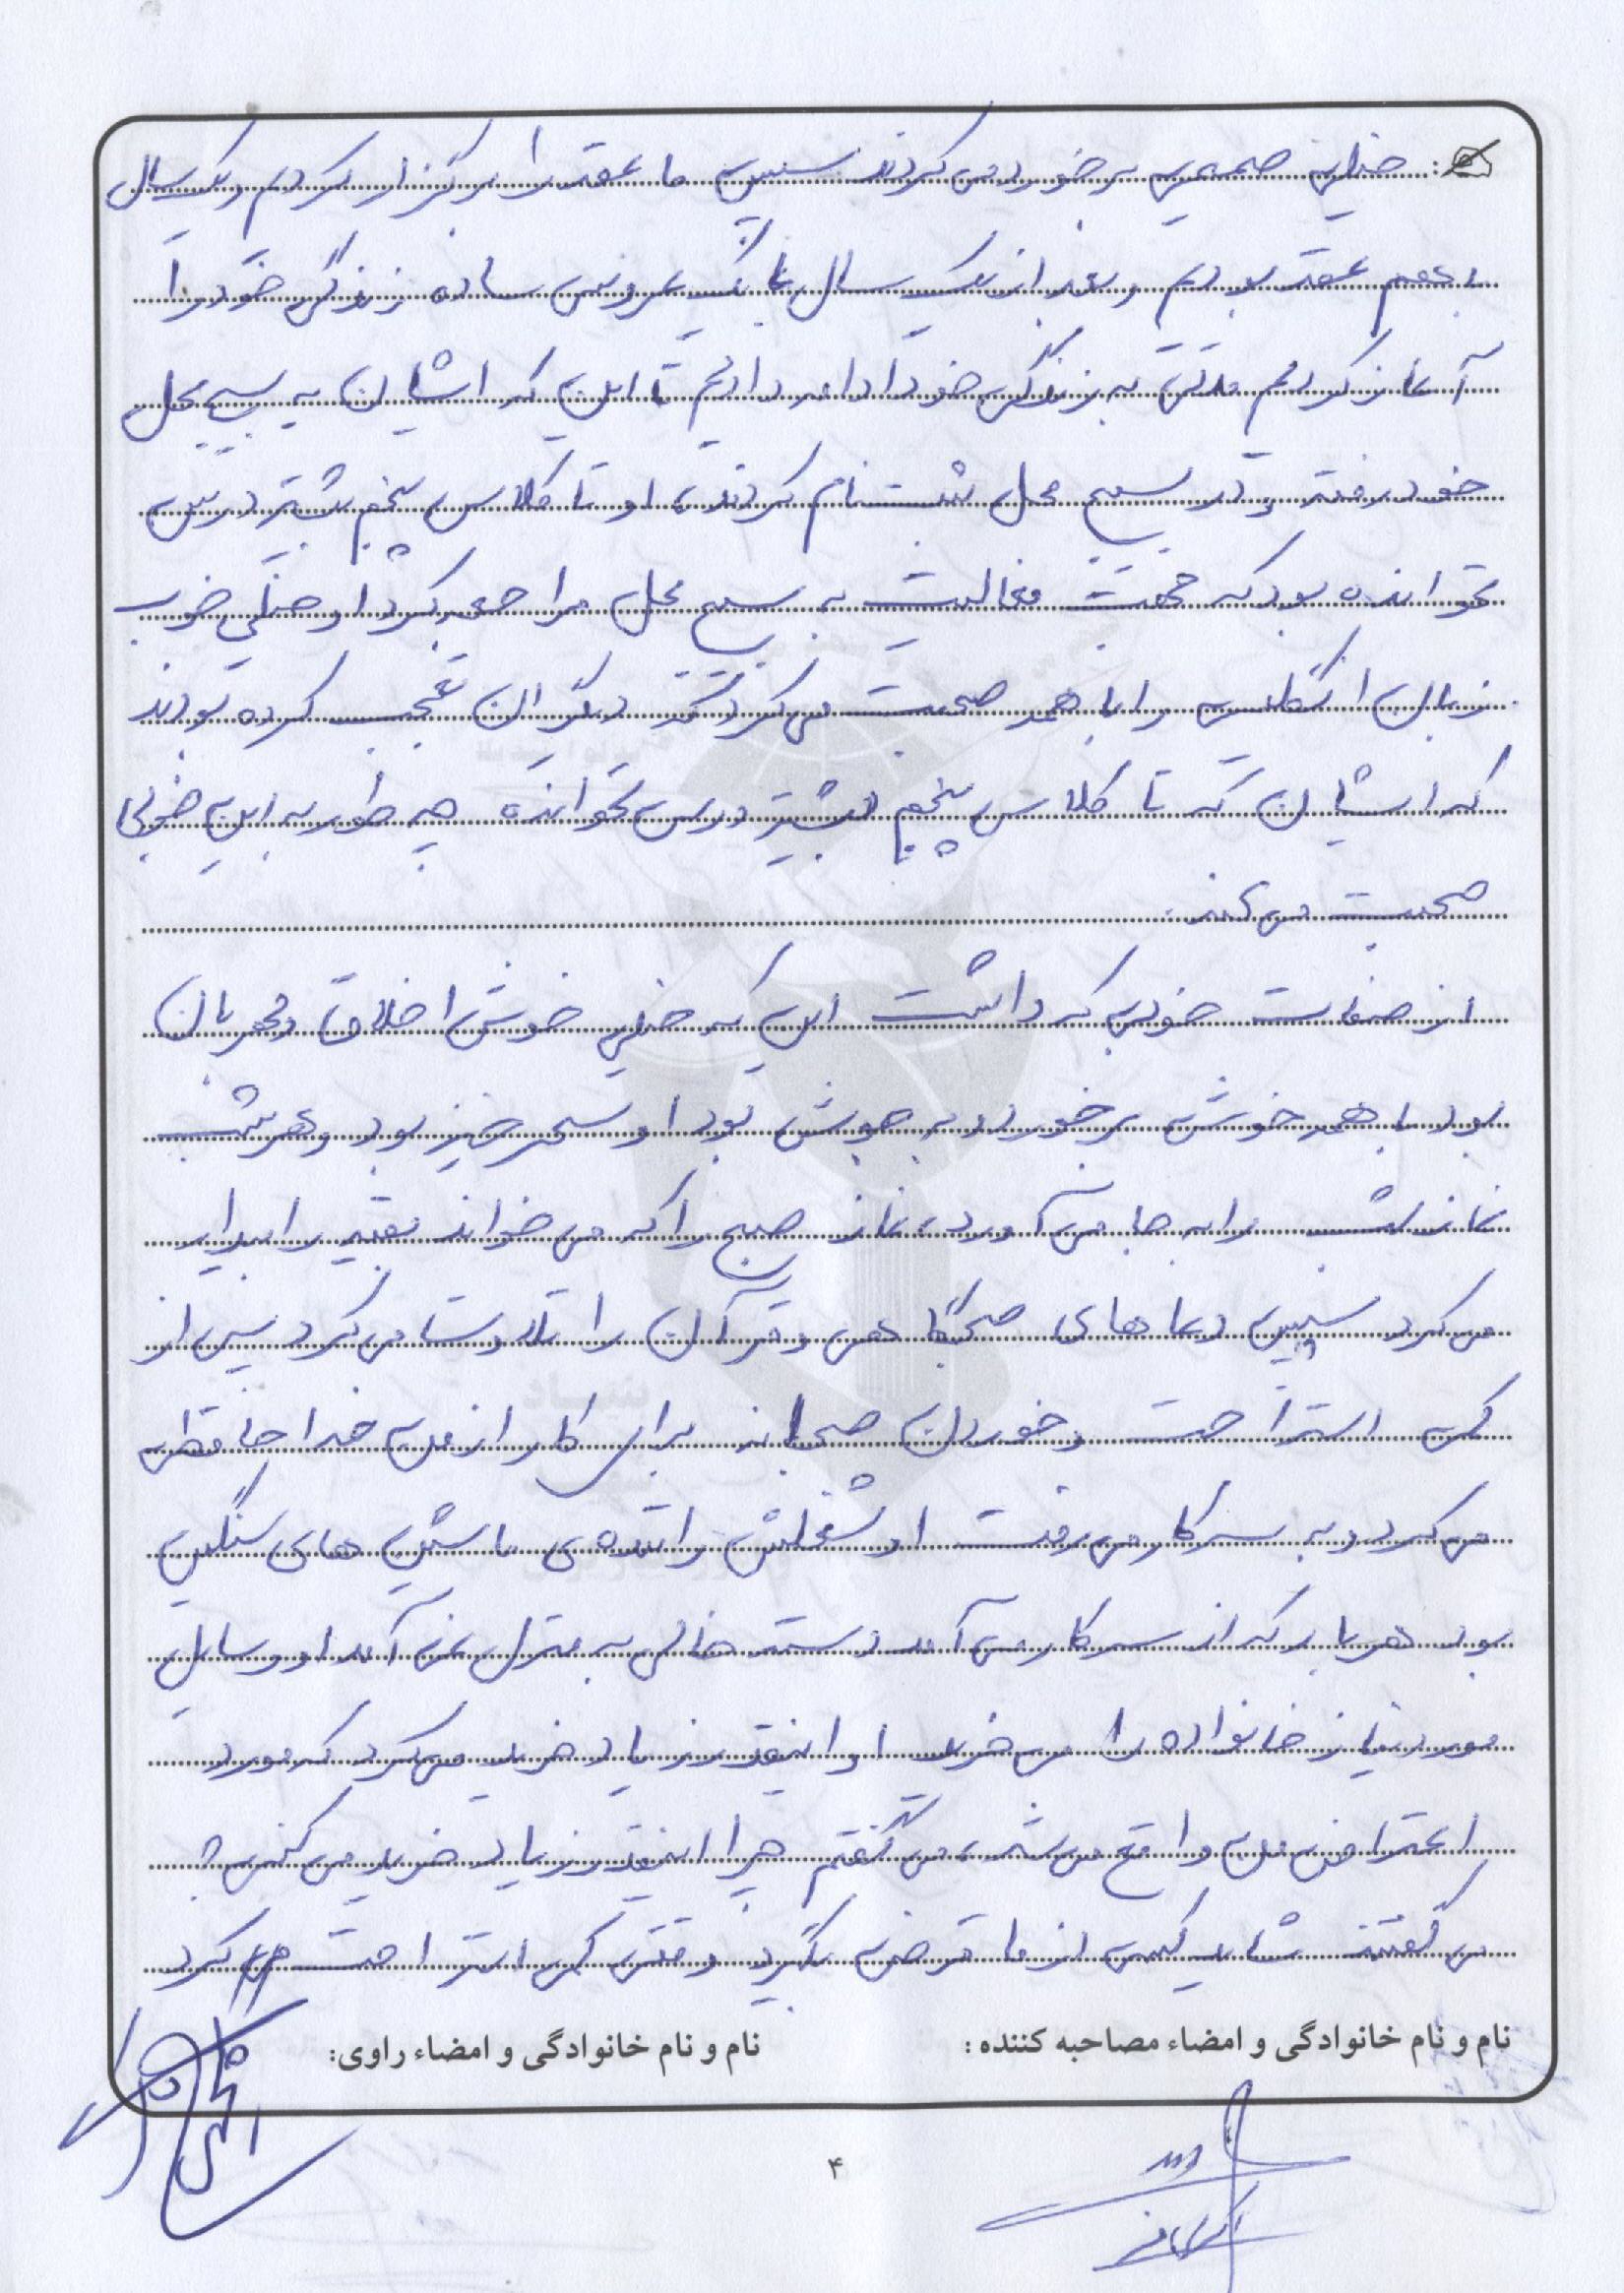 خیلی صمیمی برخورد می‌کردند سپس ما عقد را برگزار کردیم و یک سال
با هم عقد بودیم و بعد از یک سال با یک عروسی ساده زندگی خود را
آغاز کردیم مدتی به زندگی خود ادامه دادیم تا این که ایشان به بسیج محل
خود رفته و در بسیج محل ثبت نام کردند، او تا کلاس پنجم بیشتر درس
نخوانده بود که جهت فعالیت به بسیج محل مراجعه کرد او خیلی خوب
زبان انگلیسی را با همه صحبت می‌کرد که دیگران تعجب کرده بودند
که ایشان که تا کلاس پنجم بیشتر درس نخوانده چه طور به این خوبی
صحبت می‌کند.
از صفات خوبی که داشت این که خیلی خوش اخلاق و مهربان
بود با همه خوش برخورد و به جوش بود او سحر خیز بود و هر شب
نماز شب را به جا می‌آورد، نماز صبح را که می‌خواند بقیه را بیدار
می‌کرد سپس دعاهای صبحگاهی و قرآن را تلاوت می‌کرد پس از
کمی استراحت و خوردن صبحانه برای کار از من خداحافظی
می‌کرد و به سر کار می‌رفت او شغلش راننده‌ی ماشین های سنگین
بود هر بار که از سر کار می‌آمد دست خالی به منزل نمی‌آمد او وسایل
مورد نیاز خانواده را می‌خرید او اینقدر زیاد خرید می‌کرد که مورد
اعتراض من واقع می‌شد، می‌گفتم چرا اینقدر زیاد خرید می‌کنی؟
می‌گفتند شاید کسی از ما قرض بگیرد وقتی کمی استراحت می‌کرد
نام و نام خانوادگی و امضاء مصاحبه کننده :
نام و نام خانوادگی و امضاء راوی:
۴